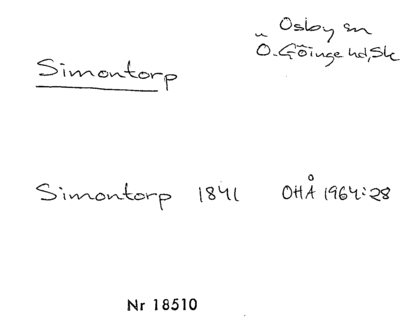 Osby sn
Ö. Göinge hd, Sk
Simontorp
Simontorp 1841 OHÅ 1964:28
Nr 18510